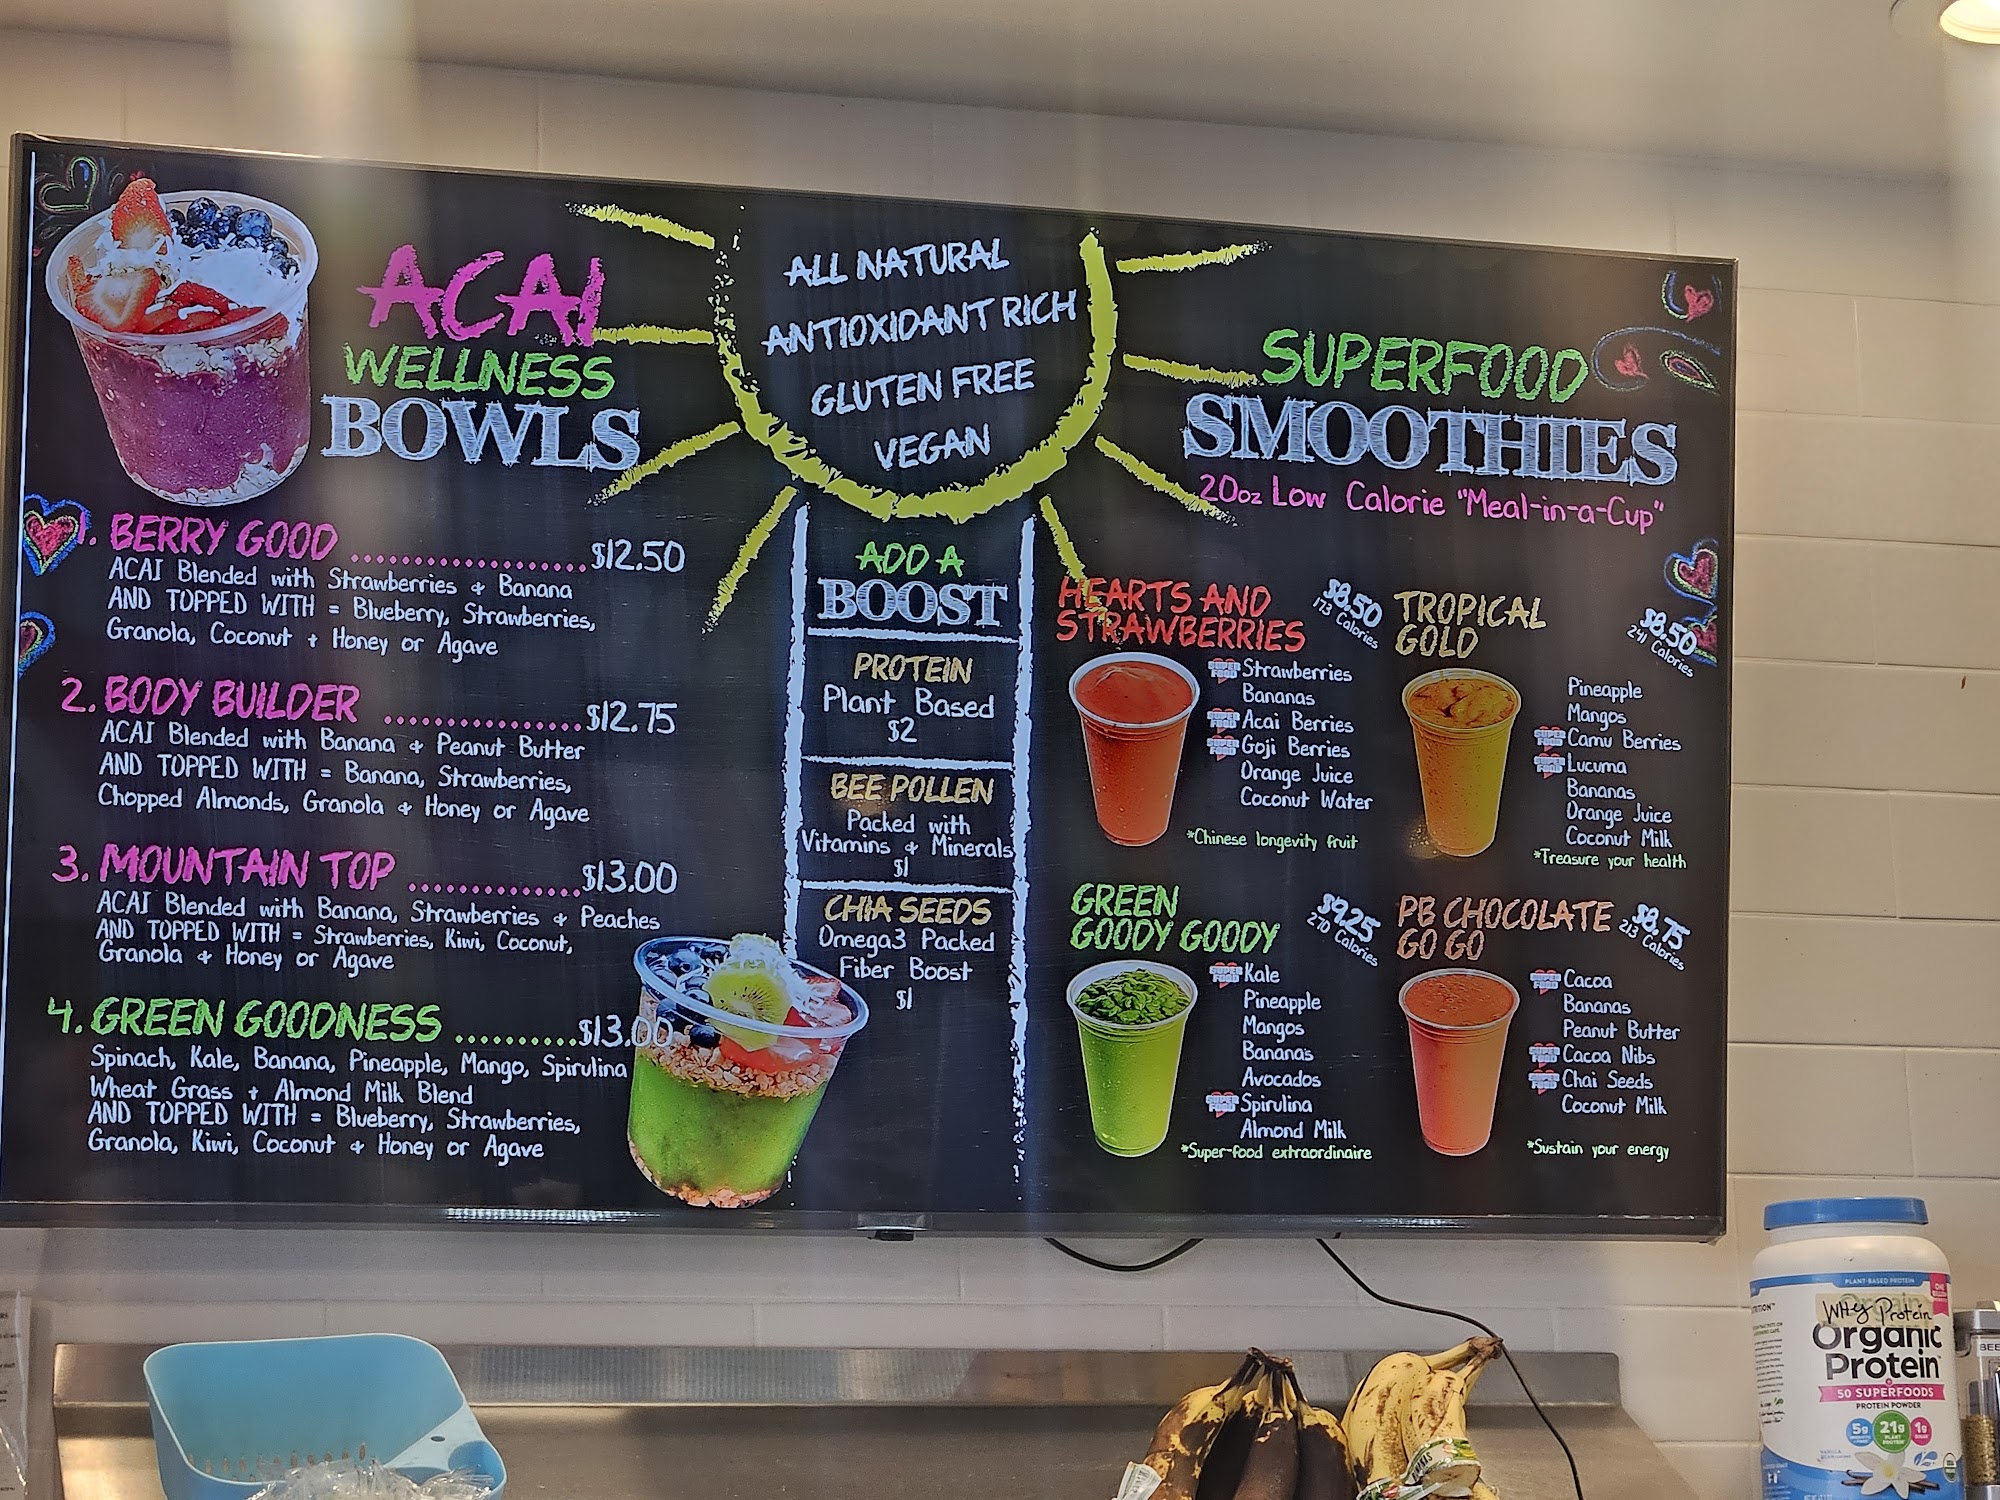 ACAI
WELLNESS
BOWLS
1. BERRY GOOD ........................ $12.50
ACAI Blended with Strawberries + Banana
AND TOPPED WITH = Blueberry, Strawberries,
Granola, Coconut + Honey or Agave
2. BODY BUILDER .................... $12.75
ACAI Blended with Banana + Peanut Butter
AND TOPPED WITH = Banana, Strawberries,
Chopped Almonds, Granola + Honey or Agave
3. MOUNTAIN TOP ................. $13.00
ACAI Blended with Banana, Strawberries + Peaches
AND TOPPED WITH = Strawberries, Kiwi, Coconut,
Granola + Honey or Agave
4. GREEN GOODNESS ............ $13.00
Spinach, Kale, Banana, Pineapple, Mango, Spirulina
Wheat Grass + Almond Milk Blend
AND TOPPED WITH = Blueberry, Strawberries,
Granola, Kiwi, Coconut + Honey or Agave
ALL NATURAL
ANTIOXIDANT RICH
GLUTEN FREE
VEGAN
ADD A
BOOST
PROTEIN
Plant Based
$2
BEE POLLEN
Packed with
Vitamins + Minerals
$1
CHIA SEEDS
Omega3 Packed
Fiber Boost
$1
SUPERFOOD
SMOOTHIES
20oz Low Calorie "Meal-in-a-Cup"
HEARTS AND
STRAWBERRIES
$8.50
173 Calories
SUPER FOOD Strawberries
Bananas
SUPER FOOD Acai Berries
SUPER FOOD Goji Berries
Orange Juice
Coconut Water
*Chinese longevity fruit
TROPICAL
GOLD
$8.50
241 Calories
Pineapple
Mangos
SUPER FOOD Camu Berries
SUPER FOOD Lucuma
Bananas
Orange Juice
Coconut Milk
*Treasure your health
GREEN
GOODY GOODY
$9.25
270 Calories
SUPER FOOD Kale
Pineapple
Mangos
Banana's
Avocados
SUPER FOOD Spirulina
Almond Milk
*Super-food extraordinaire
PB CHOCOLATE
GO GO
$8.75
213 Calories
SUPER FOOD Cacoa
Bananas
Peanut Butter
SUPER FOOD Cacoa Nibs
SUPER FOOD Chai Seeds
Coconut Milk
*Sustain your energy
PLANT-BASED PROTEIN
WHy Protein
Organic
Protein
50 SUPERFOODS
PROTEIN POWDER
5g
21g PLANT PROTEIN
1g SUGAR
BEE